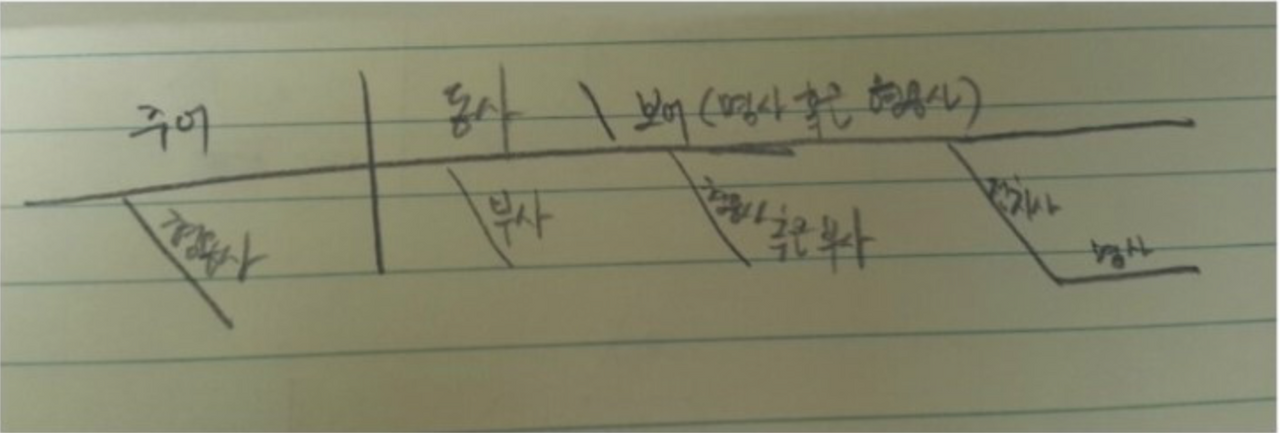 주어 동사 보어 (명사 혹은 형용사)
형용사 부사 형용사 혹은 부사 전치사 명사